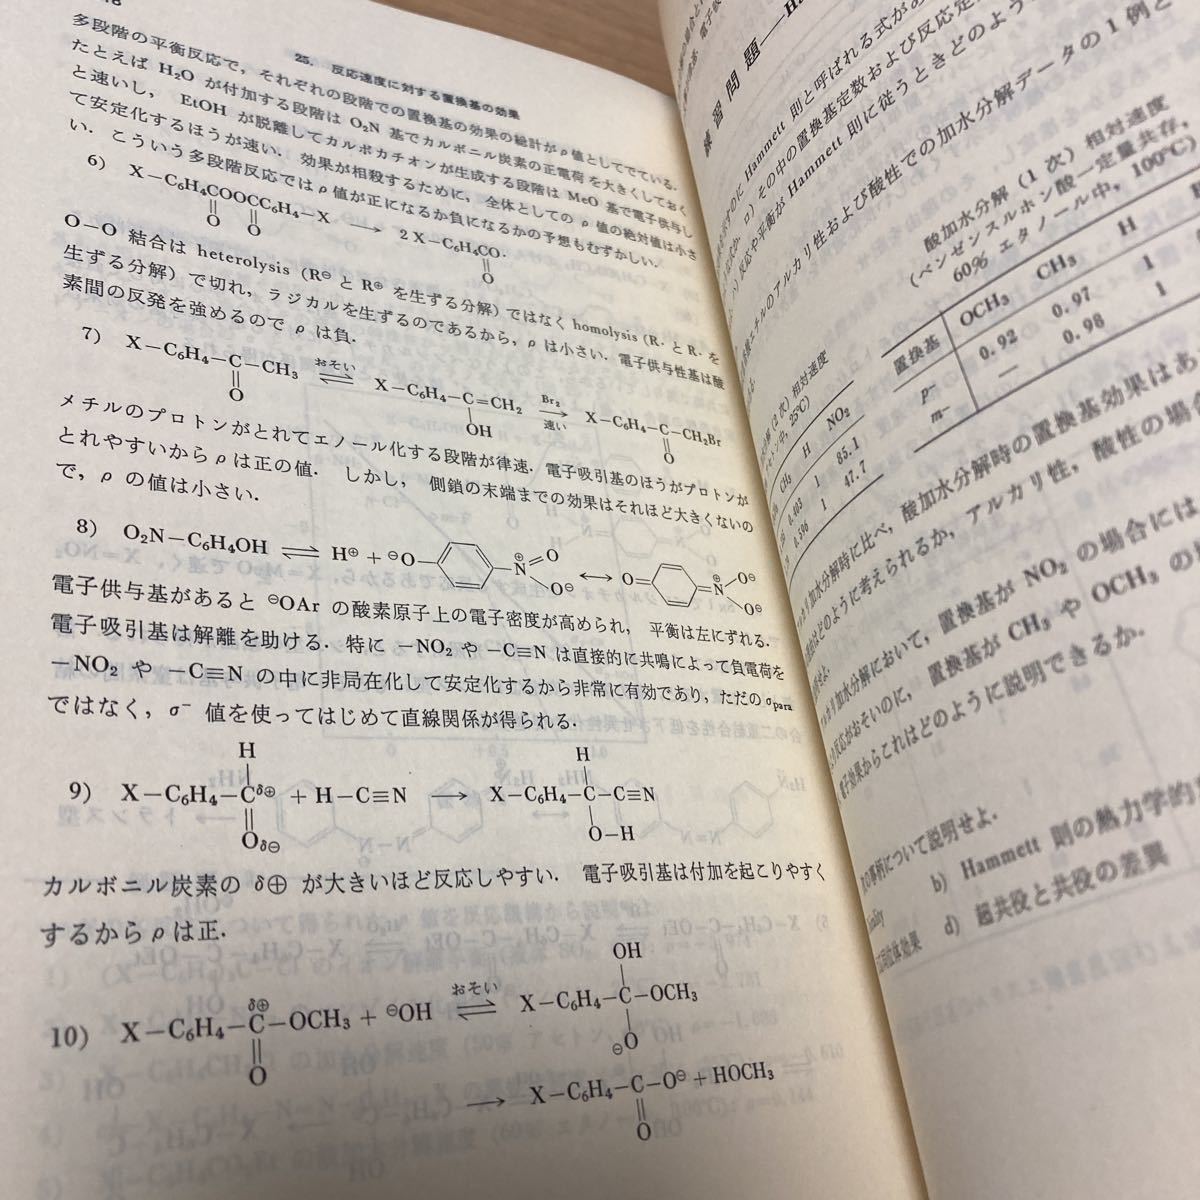 25. 反応速度に対する置換基の効果
多段階の平衡反応で，それぞれの段階での置換基の効果の総計がρ値としてでている．
たとえば H₂O が付加する段階は O₂N 基でカルボニル炭素の正電荷を大きくしておく
と速いし， EtOH が脱離してカルボカチオンが生成する段階は MeO 基で電子供与し
て安定化するほうが速い．効果が相殺するために，全体としての ρ 値の絶対値は小さ
い．こういう多段階反応では ρ 値が正になるか負になるかの予想もむずかしい．
6) X−C₆H₄COOCC₆H₄−X ⟶ 2 X−C₆H₄CO·
O O O
O−O 結合は heterolysis (R⊖ と R⊕ を生ずる分解) ではなく homolysis (R· と R· を
生ずる分解) で切れ，ラジカルを生ずるのであるから，ρ は小さい．電子供与性基は酸
素間の反発を強めるので ρ は負．
7) X−C₆H₄−C−CH₃ ⇌ おそい X−C₆H₄−C=CH₂ → Br₂ 速い X−C₆H₄−C−CH₂Br
O OH O
メチルのプロトンがとれてエノール化する段階が律速．電子吸引基のほうがプロトンが
とれやすいから ρ は正の値． しかし， 側鎖の末端までの効果はそれほど大きくないの
で，ρ の値は小さい．
8) O₂N−C₆H₄OH ⇌ H⊕ + ⊖O N⊕ O O⊖ ⟷ O= =N⊕ O⊖ O⊖
電子供与基があると ⊖OAr の酸素原子上の電子密度が高められ， 平衡は左にずれる．
電子吸引基は解離を助ける．特に −NO₂ や −C≡N は直接的に共鳴によって負電荷を
−NO₂ や −C≡N の中に非局在化して安定化するから非常に有効であり，ただの σpara
ではなく，σ⁻ 値を使ってはじめて直線関係が得られる．
H H
9) X−C₆H₄−Cδ⊕ + H−C≡N ⟶ X−C₆H₄−C−C≡N
Oδ⊖ O−H
カルボニル炭素の δ⊕ が大きいほど反応しやすい． 電子吸引基は付加を起こりやすく
するから ρ は正．
OH
10) X−C₆H₄−C−OCH₃ + ⊖OH ⇌ おそい X−C₆H₄−C−OCH₃
δ⊕
O ⊖O
⟶ X−C₆H₄−C−O⊖ + HOCH₃
O
練習問題
Hammett 則と呼ばれる式が
その中の置換基定数および反応定
反応や平衡が Hammett 則に従うときどのよう
エチルのアルカリ性および酸性での加水分解データの 1 例と
酸加水分解 (1 次) 相対速度
(ベンゼンスルホン酸一定量共存，
60% エタノール中，100°C)
置換基 OCH₃ CH₃ H
p- 0.92 0.97 1
m- — 0.98 1
(2 次) 相対速度
25°C)
CH₃ H NO₂
0.403 1 85.1
0.596 1 47.7
加水分解時に比べ，酸加水分解時の置換基効果はあ
どのように考えられるか，アルカリ性，酸性の場
加水分解において，置換基が NO₂ の場合には
反応がおそいのに，置換基が CH₃ や OCH₃ の
電子効果からこれはどのように説明できるか．
事柄について説明せよ．
b) Hammett 則の熱力学的
d) 超共役と共役の差異